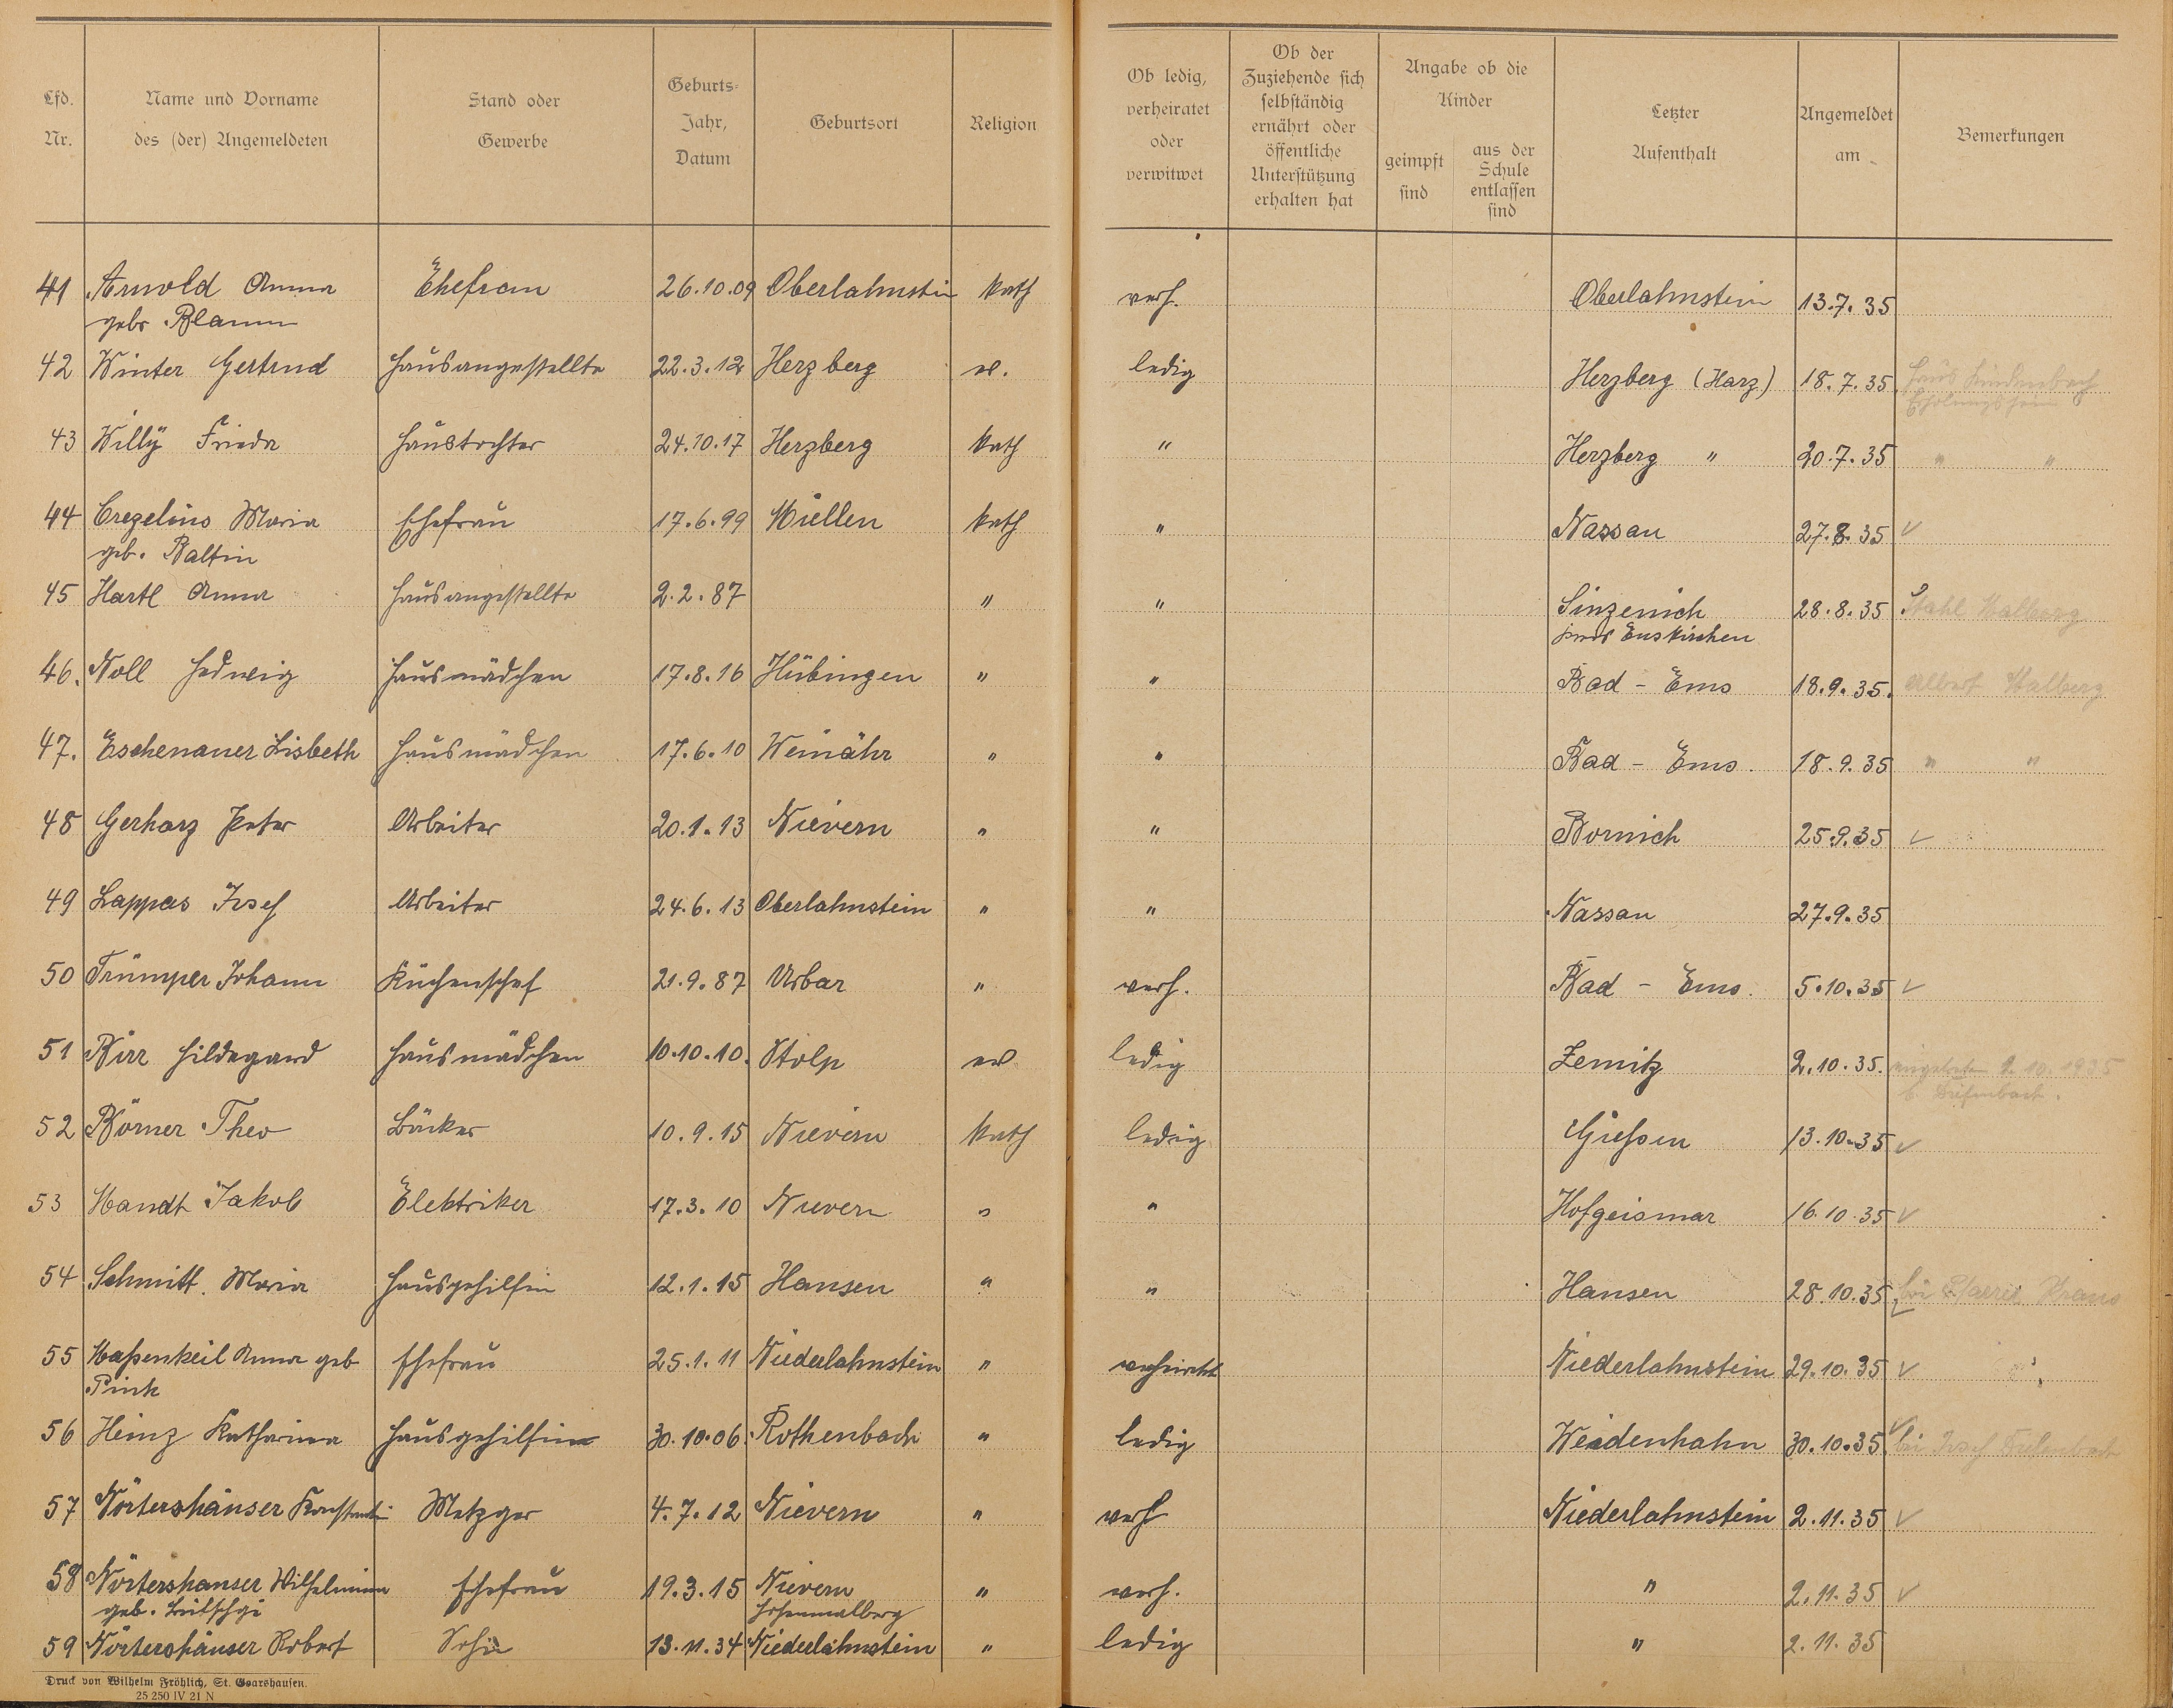 Lfd. Nr.
Name und Vorname des (der) Angemeldeten
Stand oder Gewerbe
Geburts-Jahr, Datum
Geburtsort
Religion
Ob ledig, verheiratet oder verwitwet
Ob der Zuziehende sich selbständig ernährt oder öffentliche Unterstützung erhalten hat
Angabe ob die Kinder
geimpft sind
aus der Schule entlassen sind
Letzter Aufenthalt
Angemeldet am
Bemerkungen
41 Arnold Anna Ehefrau 26.10.09 Oberlahnstein kath verh. Oberlahnstein 13.7.35
geb.
42 Winter Gertrud Hausangestellte 22.3.12 Herzberg ev. ledig Herzberg (Harz) 18.7.35 Haus Lindenbach
Erholungsheim
43 Willy Frieda Haustochter 24.10.17 Herzberg kath " Herzberg " 20.7.35 " "
44 Crezelius Maria Ehefrau 17.6.99 Miellen kath " Nassau 27.8.35 ✓
geb. Baltin
45 Hartl Anna Hausangestellte 2.2.87 " " Sinzenich 28.8.35 Stahl Malberg
Kreis Euskirchen
46. Noll Hedwig Hausmädchen 17.8.16 Hübingen " " Bad - Ems 18.9.35. Albert Malberg
47. Eschenauer Lisbeth Hausmädchen 17.6.10 Weinähr " " Bad - Ems. 18.9.35 " "
48 Gerharz Peter Arbeiter 20.1.13 Nievern " " Bornich 25.9.35 ✓
49 Lappas Josef Arbeiter 24.6.13 Oberlahnstein " " Nassau 27.9.35
50 Trümper Johann Küchenschef 21.9.87 Urbar " verh. Bad - Ems. 5.10.35 ✓
51 Birr Hildegard Hausmädchen 10.10.10. Stolp ev. ledig Zemitz 2.10.35. 2.10.1935
b.
52 Börner Theo Bäcker 10.9.15 Nievern kath ledig Gießen 13.10.35 ✓
53 Mandt Jakob Elektriker 17.3.10 Nievern " " Hofgeismar 16.10.35 ✓
54 Schmitt Maria Hausgehilfin 12.1.15 Hansen " " Hansen 28.10.35 bei
✓
55 Maßenkeil Anna geb Ehefrau 25.1.11 Niederlahnstein " verheiratet Niederlahnstein 29.10.35 ✓
Pink
56 Heinz Katharina Hausgehilfin 30.10.06. Rothenbach " ledig Weidenhahn 30.10.35 ✓ bei Josef
57 Nörtershäuser Konstantin Metzger 4.7.12 Nievern " verh Niederlahnstein 2.11.35 ✓
58 Nörtershäuser Wilhelmine Ehefrau 19.3.15 Nievern " verh. " 2.11.35 ✓
geb. Hohenmalberg
59 Nörtershäuser Robert Sohn 13.11.34 Niederlahnstein " ledig " 2.11.35
Druck von Wilhelm Fröhlich, St. Goarshausen.
25 250 IV 21 N